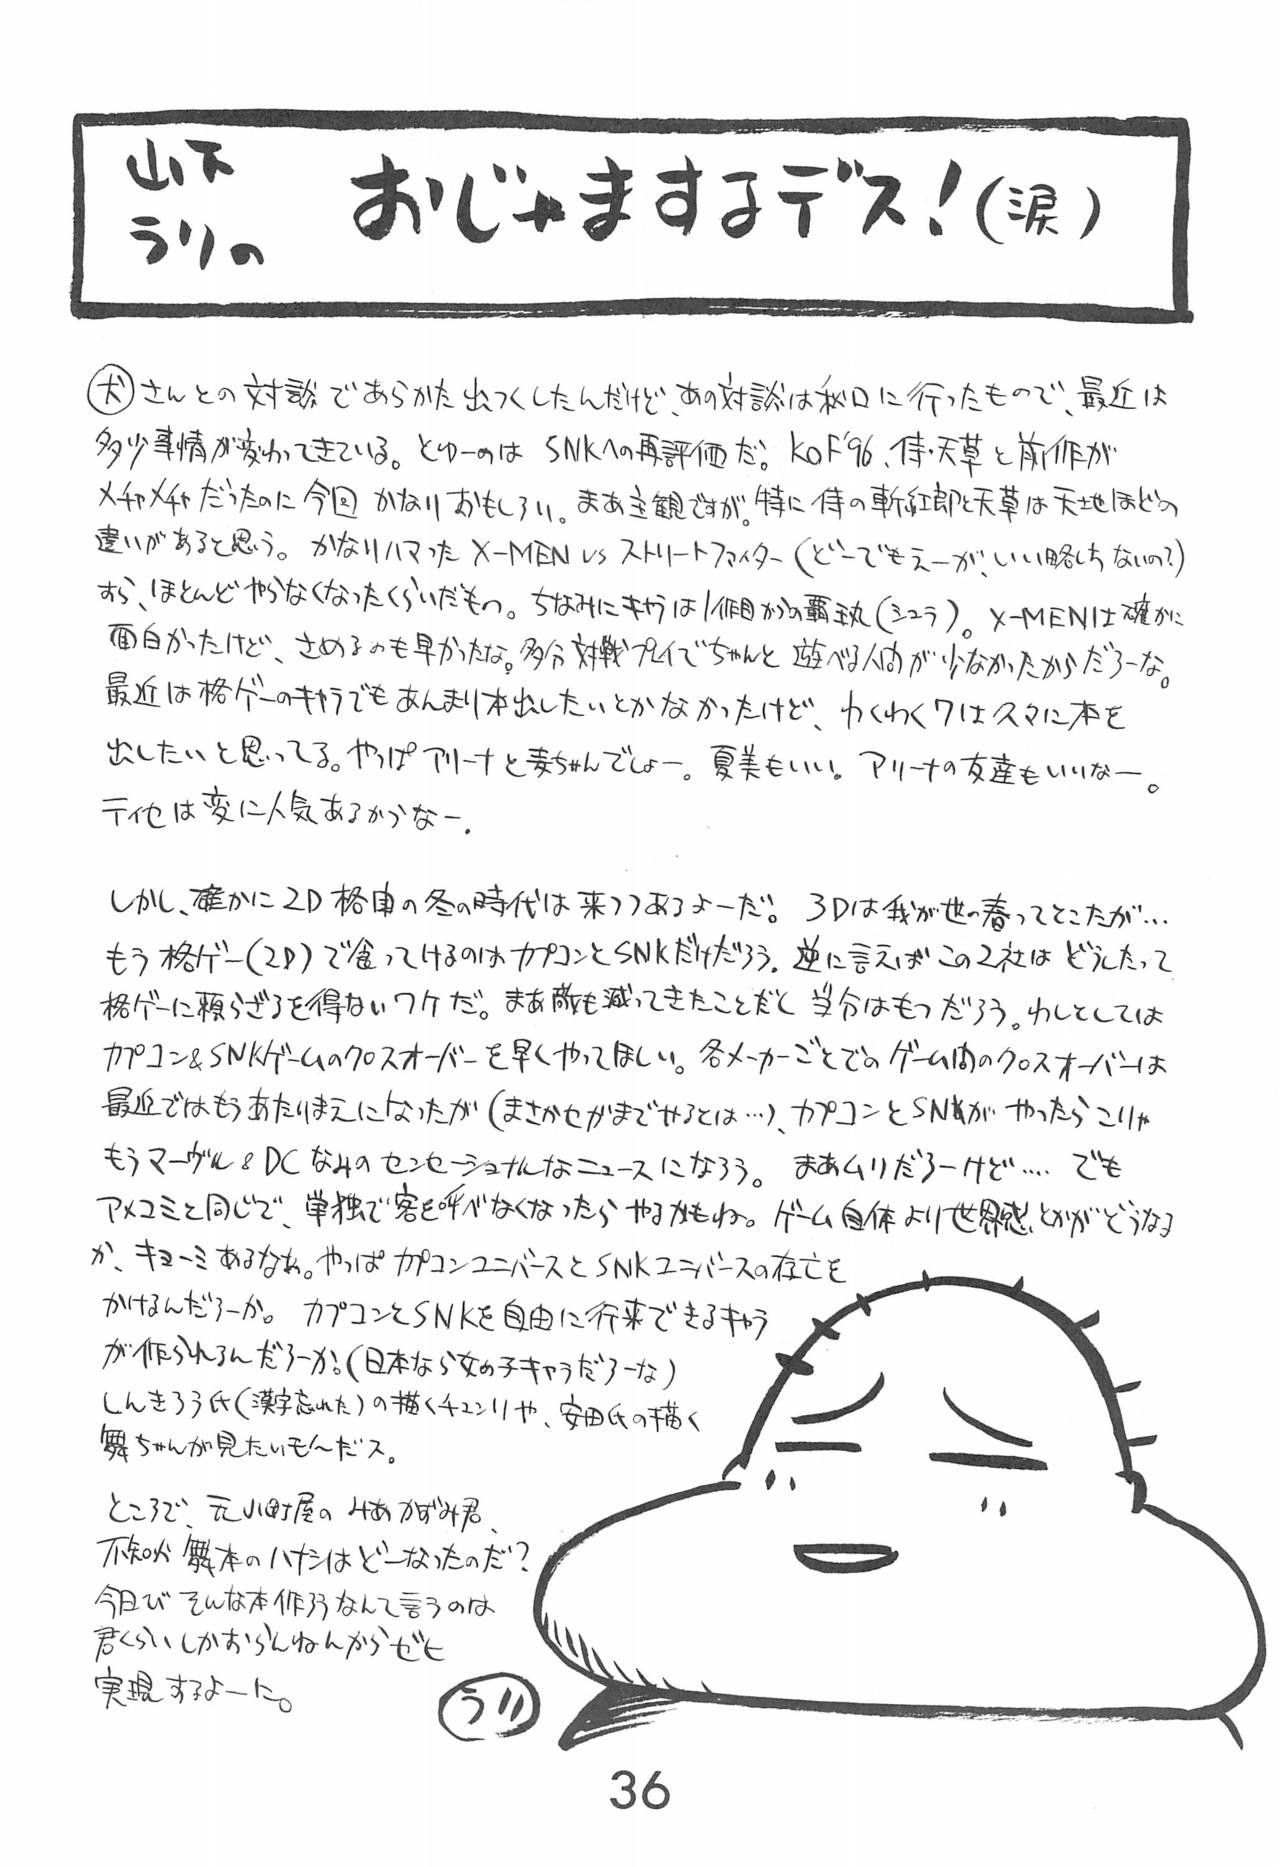 山下
うりの
おじゃまするデス!(涙)
犬さんとの対談であらかた出つくしたんだけど、あの対談は秋口に行ったもので、最近は
多少事情が変わってきている。とゆーのは SNKへの再評価だ。KOF'96、侍・天草と前作が
メチャメチャだったのに今回 かなりおもしろい。まあ主観ですが。特に侍の斬紅郎と天草は天地ほどの
違いがあると思う。かなりハマった X-MEN vs ストリートファイター(どーでもえーが、いい略しちないの?)
すら、ほとんどやらなくなったくらいだもの。ちなみにキャラは1作目からの覇王丸(シュラ)。X-MENは確かに
面白かったけど、さめるのも早かったな。多分対戦プレイでちゃんと遊べる人間が少なかったからだろーな。
最近は格ゲーのキャラでもあんまり本出したいとかなかったけど、わくわく7は久々に本を
出したいと思ってる。やっぱアリーナと麦ちゃんでしょー。夏美もいい。アリーナの友達もいいなー。
ティセは変に人気あるからなー.
しかし、確かに2D格闘の冬の時代は来つつあるよーだ。3Dは我が世の春ってとこだが…
もう格ゲー(2D)で食ってけるのはカプコンとSNKだけだろう.逆に言えばこの2社はどうしたって
格ゲーに頼らざるを得ないワケだ。まあ敵も減ってきたことだし当分はもつだろう。わしとしては
カプコン&SNKゲームのクロスオーバーを早くやってほしい。各メーカーごとでのゲーム間のクロスオーバーは
最近ではもうあたりまえになったが(まさかセガまでやるとは…)、カプコンとSNKがやったらこりゃ
もうマーヴル&DCなみのセンセーショナルなニュースになろう。まあムリだろーけど…. でも
アメコミと同じで、単独で客を呼べなくなったらやるかもね。ゲーム自体より世界感とかがどうなる
か、キョーミあるなぁ。やっぱカプコンユニバースとSNKユニバースの存亡を
かけるんだろーか。カプコンとSNKを自由に行来できるキャラ
が作られるんだろーか。(日本なら女の子キャラだろーな)
しんきろう氏(漢字忘れた)の描くチュンリや、安田氏の描く
舞ちゃんが見たいも〜だス。
ところで、元小町屋のみあかずみ君、
不知火舞本のハナシはどーなったのだ?
今日びそんな本作ろうなんて言うのは
君くらいしかおらんねんからゼヒ
実現するよーに。
うり
36